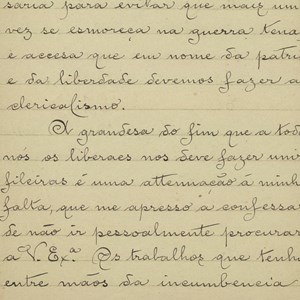 saria para evitar que mais um
vez se esmoreça na guerra tena
e accesa que em nome da patri
e da liberdade devemos fazer a
clericalismo.
A grandesa do fim que a tod
nós os liberaes nos deve fazer uni
fileiras é uma attenuação á minh
falta, que me apresso a confessa
de não ir pessoalmente procurar
a V. Exª. Os trabalhos que tenh
entre mãos da incumbencia